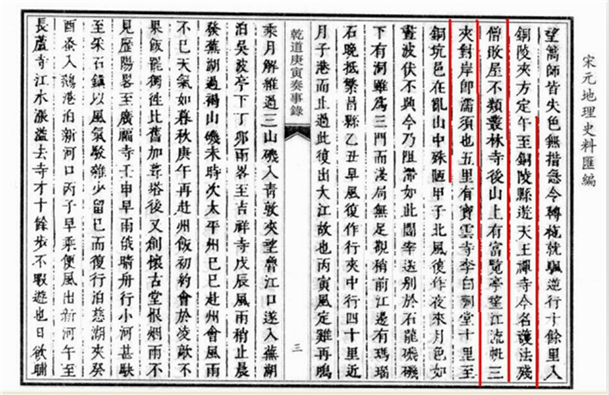 宋元地理史料匯編
望蒿師皆失色無措急令轉桅就颿逆行十餘里入
銅陵夾方定午至銅陵縣遊天王禪寺今名護法殘
僧敗屋不類叢林寺後山上有富覽亭望江流輒三
夾對岸即濡須也五里有寶雲寺李白祠堂十里至
銅坑邑在亂山中殊陋甲子北風後作夜來月色如
晝波伏不興今乃阻滯如此宰送別於石龍磯磯
下有洞雖為三門而淺局無足觀稍前江邊有瑪瑙
石晚抵繁昌縣乙丑早風復作行夾中行四十里近
月子港而止過此復出大江故也丙寅風定雞再鳴
乾道庚寅奏事錄
三
乘月解維過三山磯入青敦夾望魯江口遂入蕪湖
泊吳波亭下丁卯雨畧至吉祥寺戊辰風雨稍止晨
發蕪湖過褐山磯未時次太平州己巳赴州會風雨
不已天氣如春秋庚午再赴州飯初約會於凌歊不
果飯罷獨徃比舊加葺塔後又創懷古堂恨烟雨不
見歷陽畧至廣福寺壬申早雨俄晴舟行小河甚駃
至采石鎮以風氣駮雜少留已而復行泊慈湖夾癸
酉蚤入鵝港泊新河口丙子早乘便風出新河午至
長蘆寺江水漲溢去寺才十餘步不暇遊也日欲晡